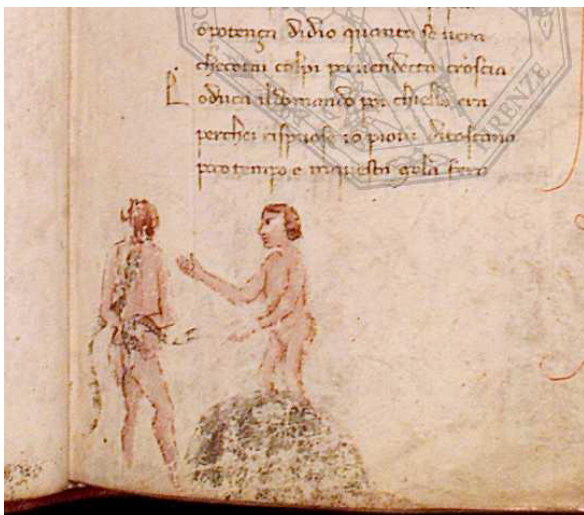 opotença didio quanto se uera
checotai colpi peruendetta croscia
Lo duca il domando poi chiello era
perchei rispuose io piovi ditoscana
poco tempo e in questa gola fera
FIRENZE